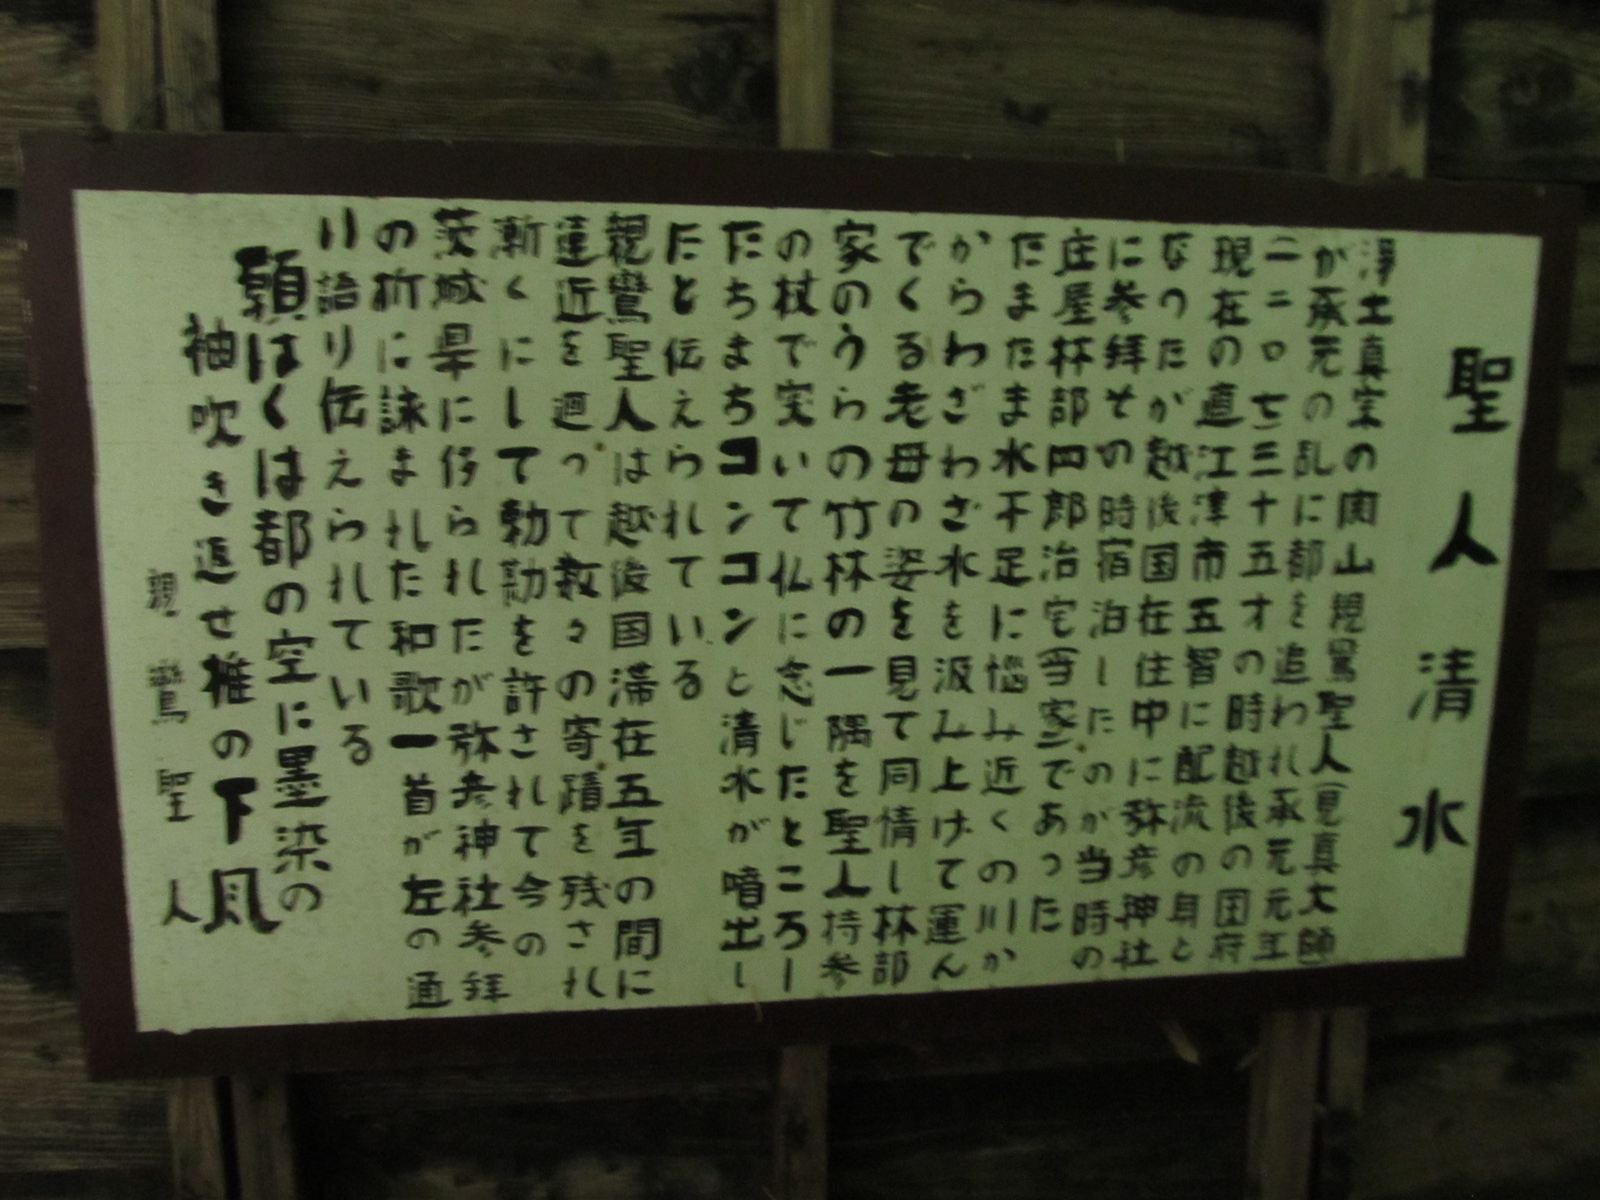 聖人清水
浄土真宗の開山親鸞聖人(見真大師)
が承元の乱に都を追われ承元元年
一二〇七三十五才の時越後の国府
現在の直江津市五智に配流の身と
なったが越後国在住中に弥彦神社
に参拝その時宿泊したのが当時の
庄屋林部四郎治宅(当家)であった
たまたま水不足に悩み近くの川か
からわざわざ水を汲み上げて運ん
でくる老母の姿を見て同情し林部
家のうらの竹林の一隅を聖人持参
の杖で突いて仏に念じたところー
たちまちコンコンと清水が噴出し
たと伝えられている
親鸞聖人は越後国滞在五年の間に
蓮近を廻って数々の寄蹟を残され
漸くにして勅勘を許されて今の
茨城県に移られたが弥彦神社参拝
の折に詠まれた和歌一首が左の通
い語り伝えられている
願はくは都の空に墨染の
袖吹き返せ椎の下風
親鸞聖人